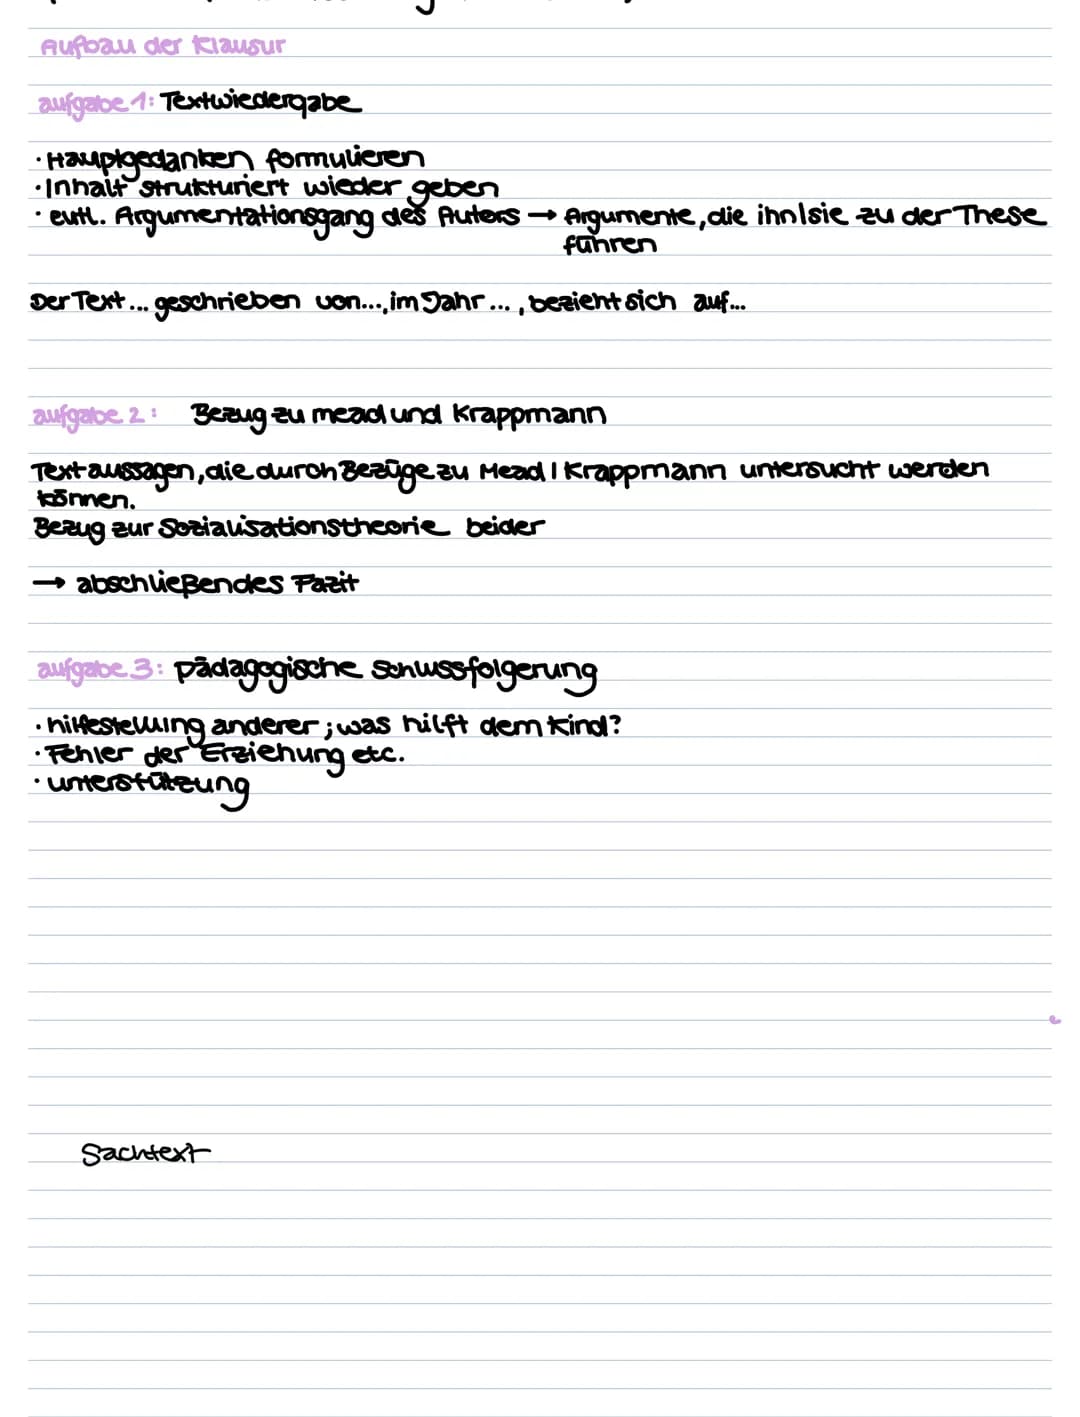 Aufbau der Klausur
aufgabe 1: Textwiedergabe
· Hauptgedanken formulieren
· Inhalt strukturiert wieder geben
· evtl. Argumentationsgang des Autors → Argumente, die ihn/sie zu der These
führen
Der Text ... geschrieben von..., im Jahr ... , bezieht sich auf...
aufgabe 2: Bezug zu mead und Krappmann
Textaussagen, die durch Bezüge zu Mead / Krappmann untersucht werden
können.
Bezug zur Sozialisationstheorie beider
→ abschließendes Fazit
aufgabe 3: pädagogische schlussfolgerung
· hilfestellung anderer ; was hilft dem Kind?
· Fehler der Erziehung etc.
· unterstützung
Sachtext